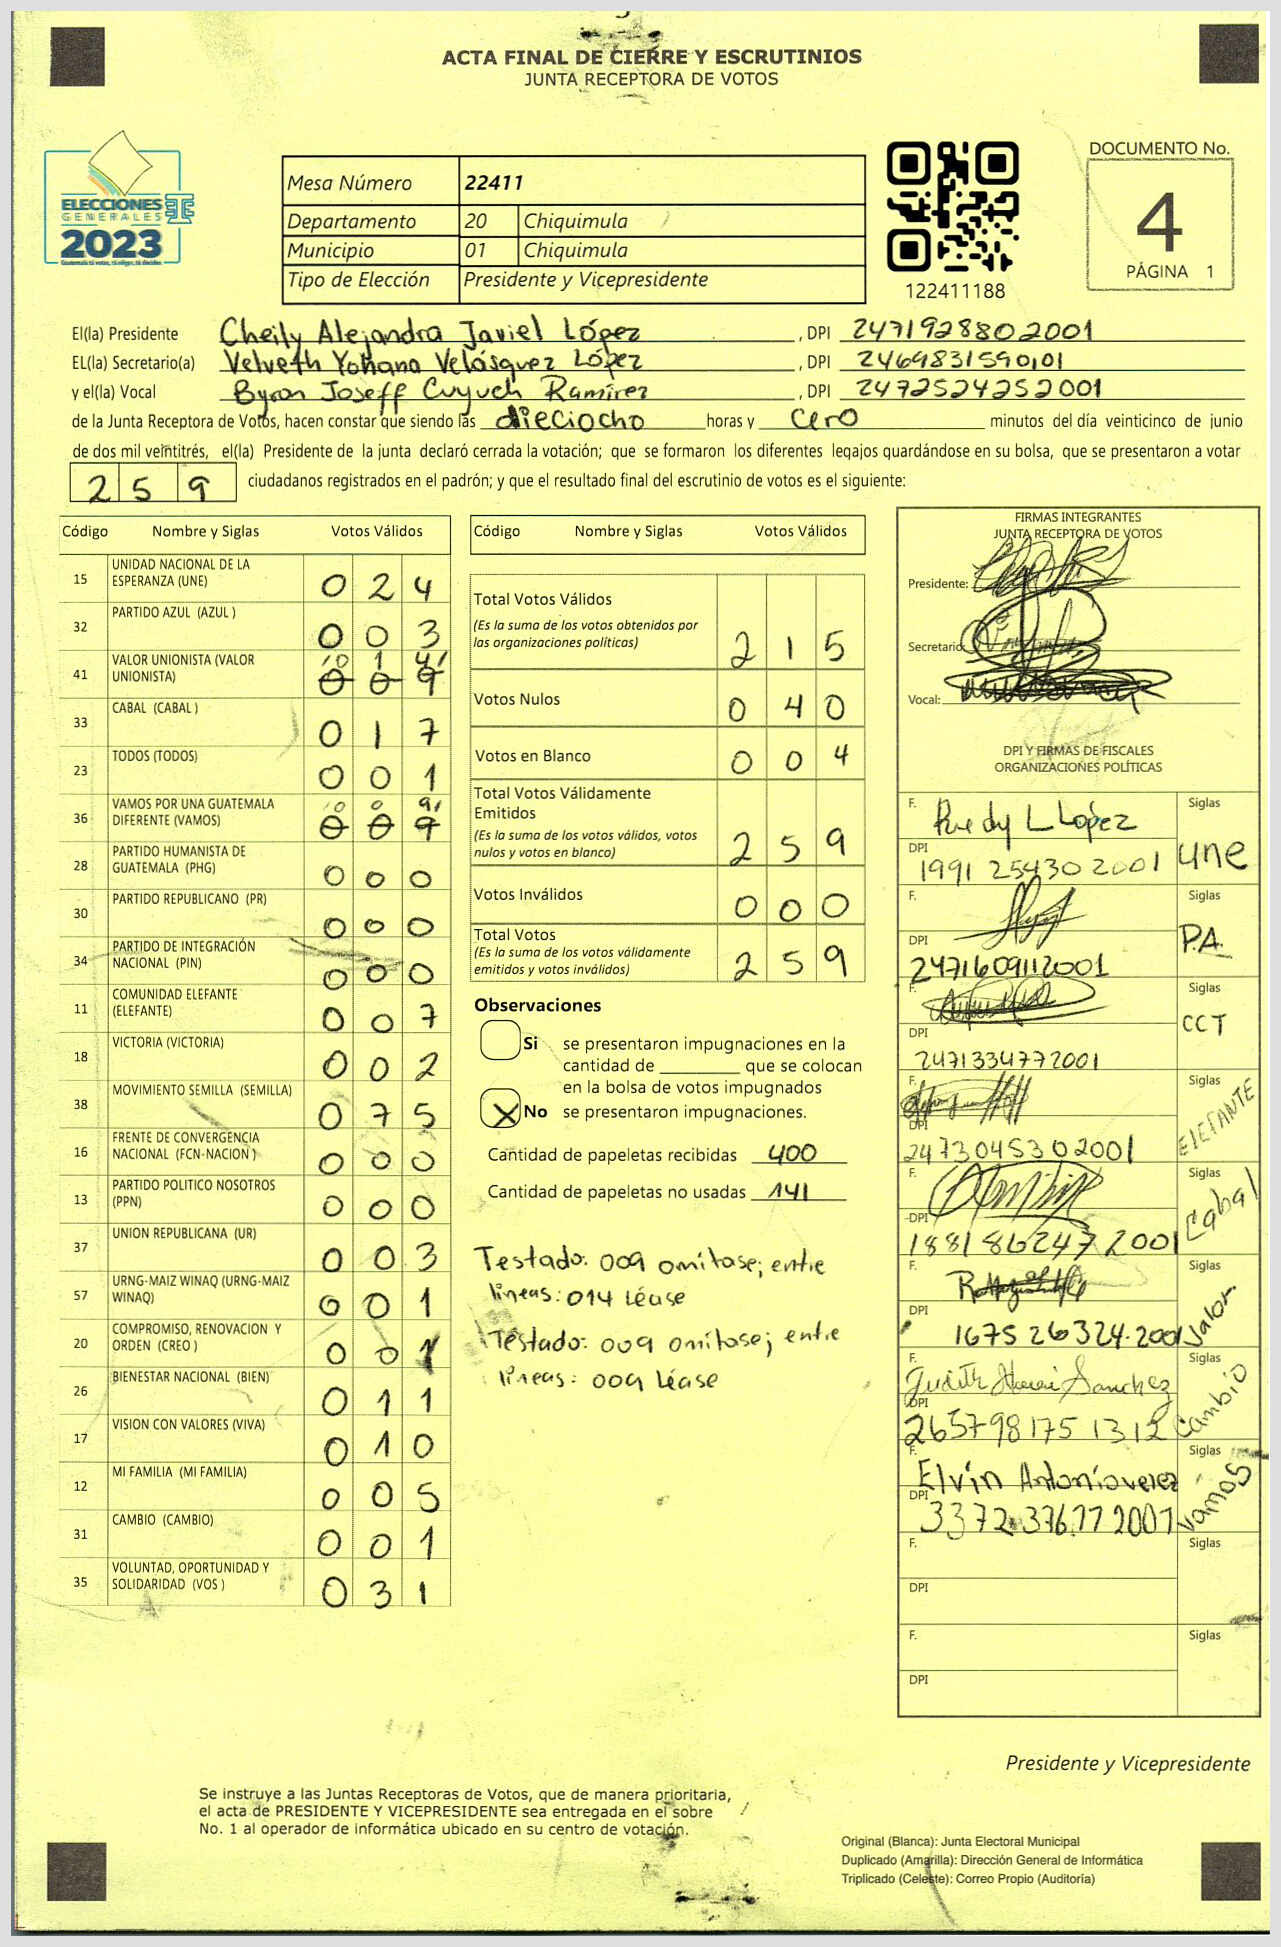 ACTA FINAL DE CIERRE Y ESCRUTINIOS
JUNTA RECEPTORA DE VOTOS
ELECCIONES
GENERALES
2023
Mesa Número 22411
Departamento 20 Chiquimula
Municipio 01 Chiquimula
Tipo de Elección Presidente y Vicepresidente
122411188
DOCUMENTO No.
4
PÁGINA 1
El(la) Presidente Cheily Alejandra Javiel López , DPI 2471928802001
EL(la) Secretario(a) Velveth Yohana Velásquez López , DPI 2469831590101
y el(la) Vocal Byron Joseff Cuyuch Ramírez , DPI 2472524252001
de la Junta Receptora de Votos, hacen constar que siendo las dieciocho horas y cero minutos del día veinticinco de junio
de dos mil veintitrés, el(la) Presidente de la junta declaró cerrada la votación; que se formaron los diferentes legajos guardándose en su bolsa, que se presentaron a votar
259 ciudadanos registrados en el padrón; y que el resultado final del escrutinio de votos es el siguiente:
Código Nombre y Siglas Votos Válidos
15 UNIDAD NACIONAL DE LA ESPERANZA (UNE) 024
32 PARTIDO AZUL (AZUL ) 003
41 VALOR UNIONISTA (VALOR UNIONISTA) 014 009
33 CABAL (CABAL ) 017
23 TODOS (TODOS) 001
36 VAMOS POR UNA GUATEMALA DIFERENTE (VAMOS) 009 009
28 PARTIDO HUMANISTA DE GUATEMALA (PHG) 000
30 PARTIDO REPUBLICANO (PR) 000
34 PARTIDO DE INTEGRACIÓN NACIONAL (PIN) 000
11 COMUNIDAD ELEFANTE (ELEFANTE) 007
18 VICTORIA (VICTORIA) 002
38 MOVIMIENTO SEMILLA (SEMILLA) 075
16 FRENTE DE CONVERGENCIA NACIONAL (FCN-NACION ) 000
13 PARTIDO POLITICO NOSOTROS (PPN) 000
37 UNION REPUBLICANA (UR) 003
57 URNG-MAIZ WINAQ (URNG-MAIZ WINAQ) 001
20 COMPROMISO, RENOVACION Y ORDEN (CREO ) 001
26 BIENESTAR NACIONAL (BIEN) 011
17 VISION CON VALORES (VIVA) 010
12 MI FAMILIA (MI FAMILIA) 005
31 CAMBIO (CAMBIO) 001
35 VOLUNTAD, OPORTUNIDAD Y SOLIDARIDAD (VOS ) 031
Código Nombre y Siglas Votos Válidos
Total Votos Válidos
(Es la suma de los votos obtenidos por
las organizaciones políticas) 215
Votos Nulos 040
Votos en Blanco 004
Total Votos Válidamente
Emitidos
(Es la suma de los votos válidos, votos
nulos y votos en blanco) 259
Votos Inválidos 000
Total Votos
(Es la suma de los votos válidamente
emitidos y votos inválidos) 259
Observaciones
Si se presentaron impugnaciones en la
cantidad de ________ que se colocan
en la bolsa de votos impugnados
X No se presentaron impugnaciones.
Cantidad de papeletas recibidas 400
Cantidad de papeletas no usadas 141
Testado: 009 omítase; entre
líneas: 014 Léase
Testado: 009 omítase; entre
líneas: 009 Léase
FIRMAS INTEGRANTES
JUNTA RECEPTORA DE VOTOS
Presidente:
Secretario:
Vocal:
DPI Y FIRMAS DE FISCALES
ORGANIZACIONES POLÍTICAS
F. Ruedy L López Siglas
DPI 1991 25430 2001 une
F. Siglas
DPI P.A.
2471609112001
F. Siglas
DPI CCT
2471334772001
F. Siglas
DPI ElEFANTE
2473045302001
F. Siglas
DPI Cabal
1881 86247 2001
F. Siglas
DPI Valor
1675 26324-2001
F. Judith Sanchez Siglas
DPI Cambio
265798175 1312
F. Elvin Antonio verez Siglas
DPI vamos
3372 37677 2001
F. Siglas
DPI
F. Siglas
DPI
Presidente y Vicepresidente
Se instruye a las Juntas Receptoras de Votos, que de manera prioritaria,
el acta de PRESIDENTE Y VICEPRESIDENTE sea entregada en el sobre
No. 1 al operador de informática ubicado en su centro de votación.
Original (Blanca): Junta Electoral Municipal
Duplicado (Amarilla): Dirección General de Informática
Triplicado (Celeste): Correo Propio (Auditoría)